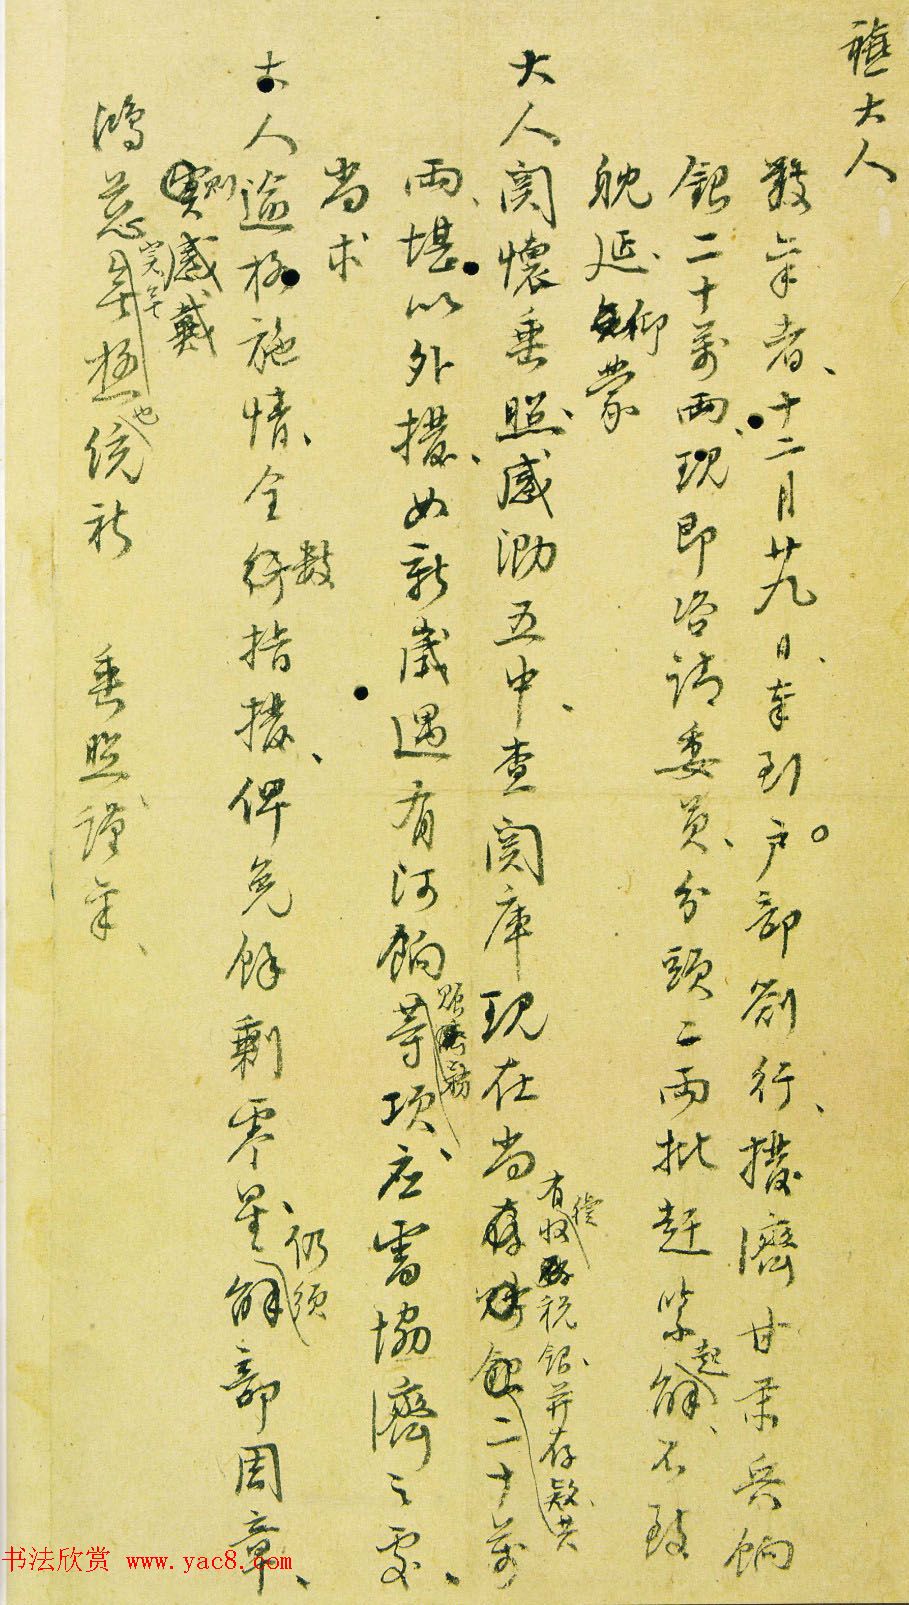 禧大人
敬稟者、十二月廿九日、奉到户部劄行、撥濟甘肅兵餉
銀二十萬兩、現即咨請委員、分頭二兩批趕緊解起、不致
躭延、仰蒙
大人関懷垂照、感泐五中、查関庫現在尚有收税銀、并存款共二十萬
兩、堪以外撥、如新歲遇有河餉賑務等項、应需協濟之處、
尚求
大人逾格施情、全數指撥、俾免餘剩零星、仍須解部周章、
則感戴
鴻慈、實無既也、統祈 垂照、謹稟、
书法欣赏 www.yac8.com